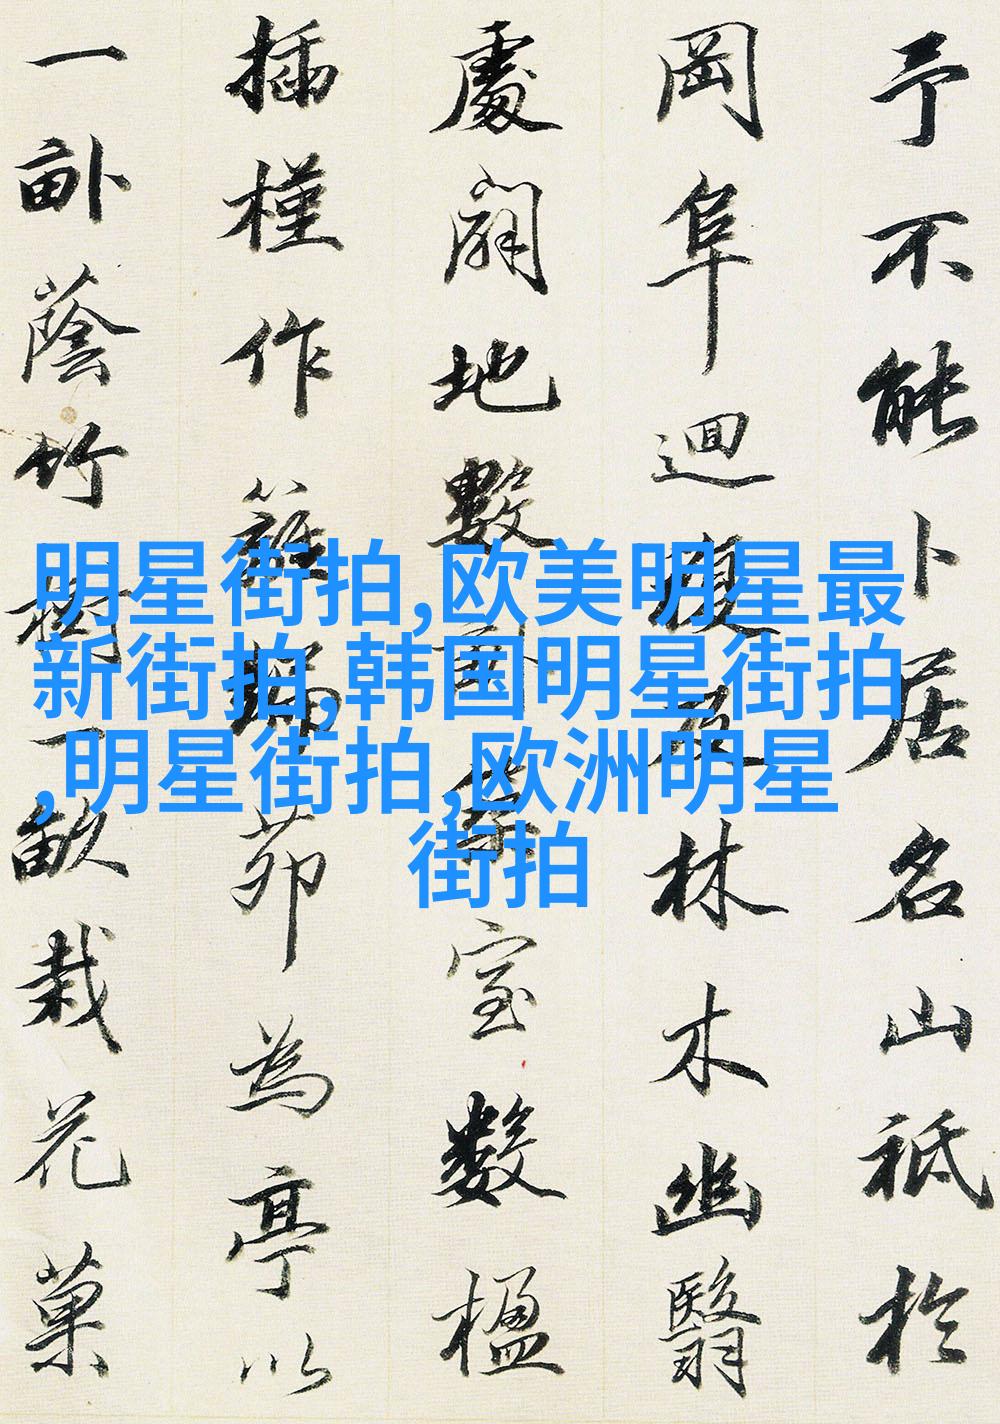 予不能卜居名山祗於
岡阜迴複及林木幽翳
處闢地數畝築室數楹
插槿作籬編茆為亭以
一畝蔭竹樹一畝栽花菓
明星街拍,欧美明星最
新街拍,韩国明星街拍
,明星街拍,欧洲明星
街拍